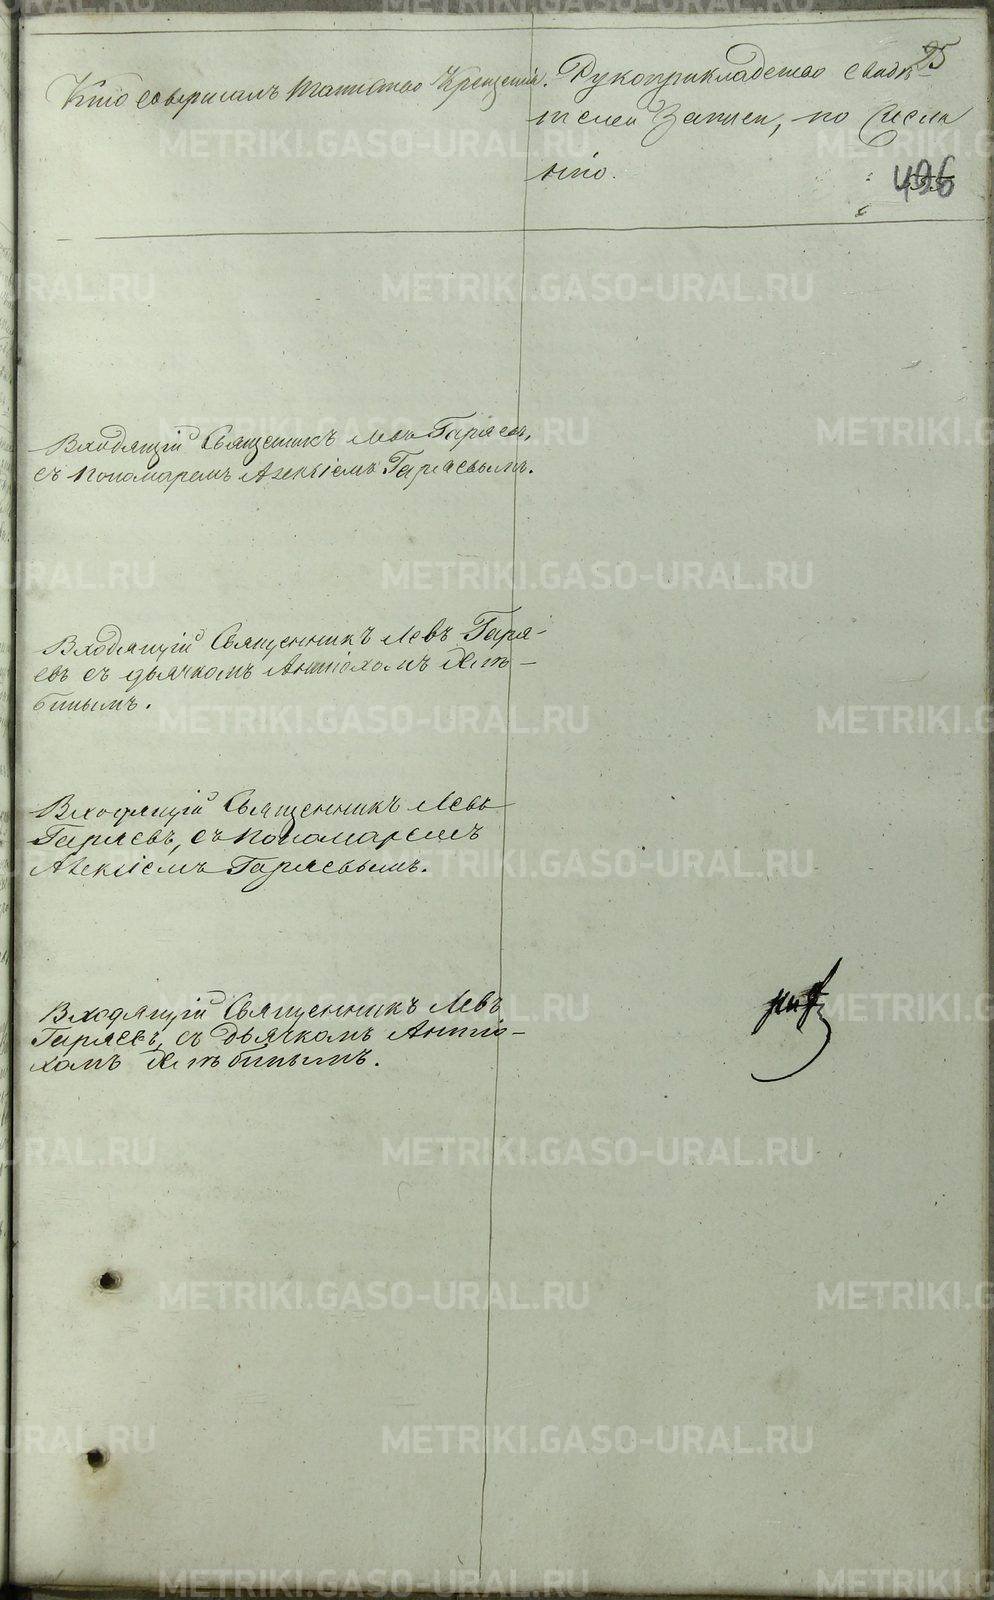 25
Кто совершалъ таинство Крещенія.
Рукоприкладство свидѣ
телей Записи, по
нію.
496
Входящій Священникъ Левъ Гаряевъ,
съ пономаремъ Алексіемъ Гаряевымъ.
Входящій Священникъ Левъ Гаря-
евъ съ дьячкомъ Антіохомъ
Входящій Священникъ Левъ
Гаряевъ, съ пономаремъ
Алексіемъ Гаряевымъ.
Входящій Священникъ Левъ
Гаряевъ, съ Дьячкомъ Антіо-
хомъ
METRIKI.GASO-URAL.RU